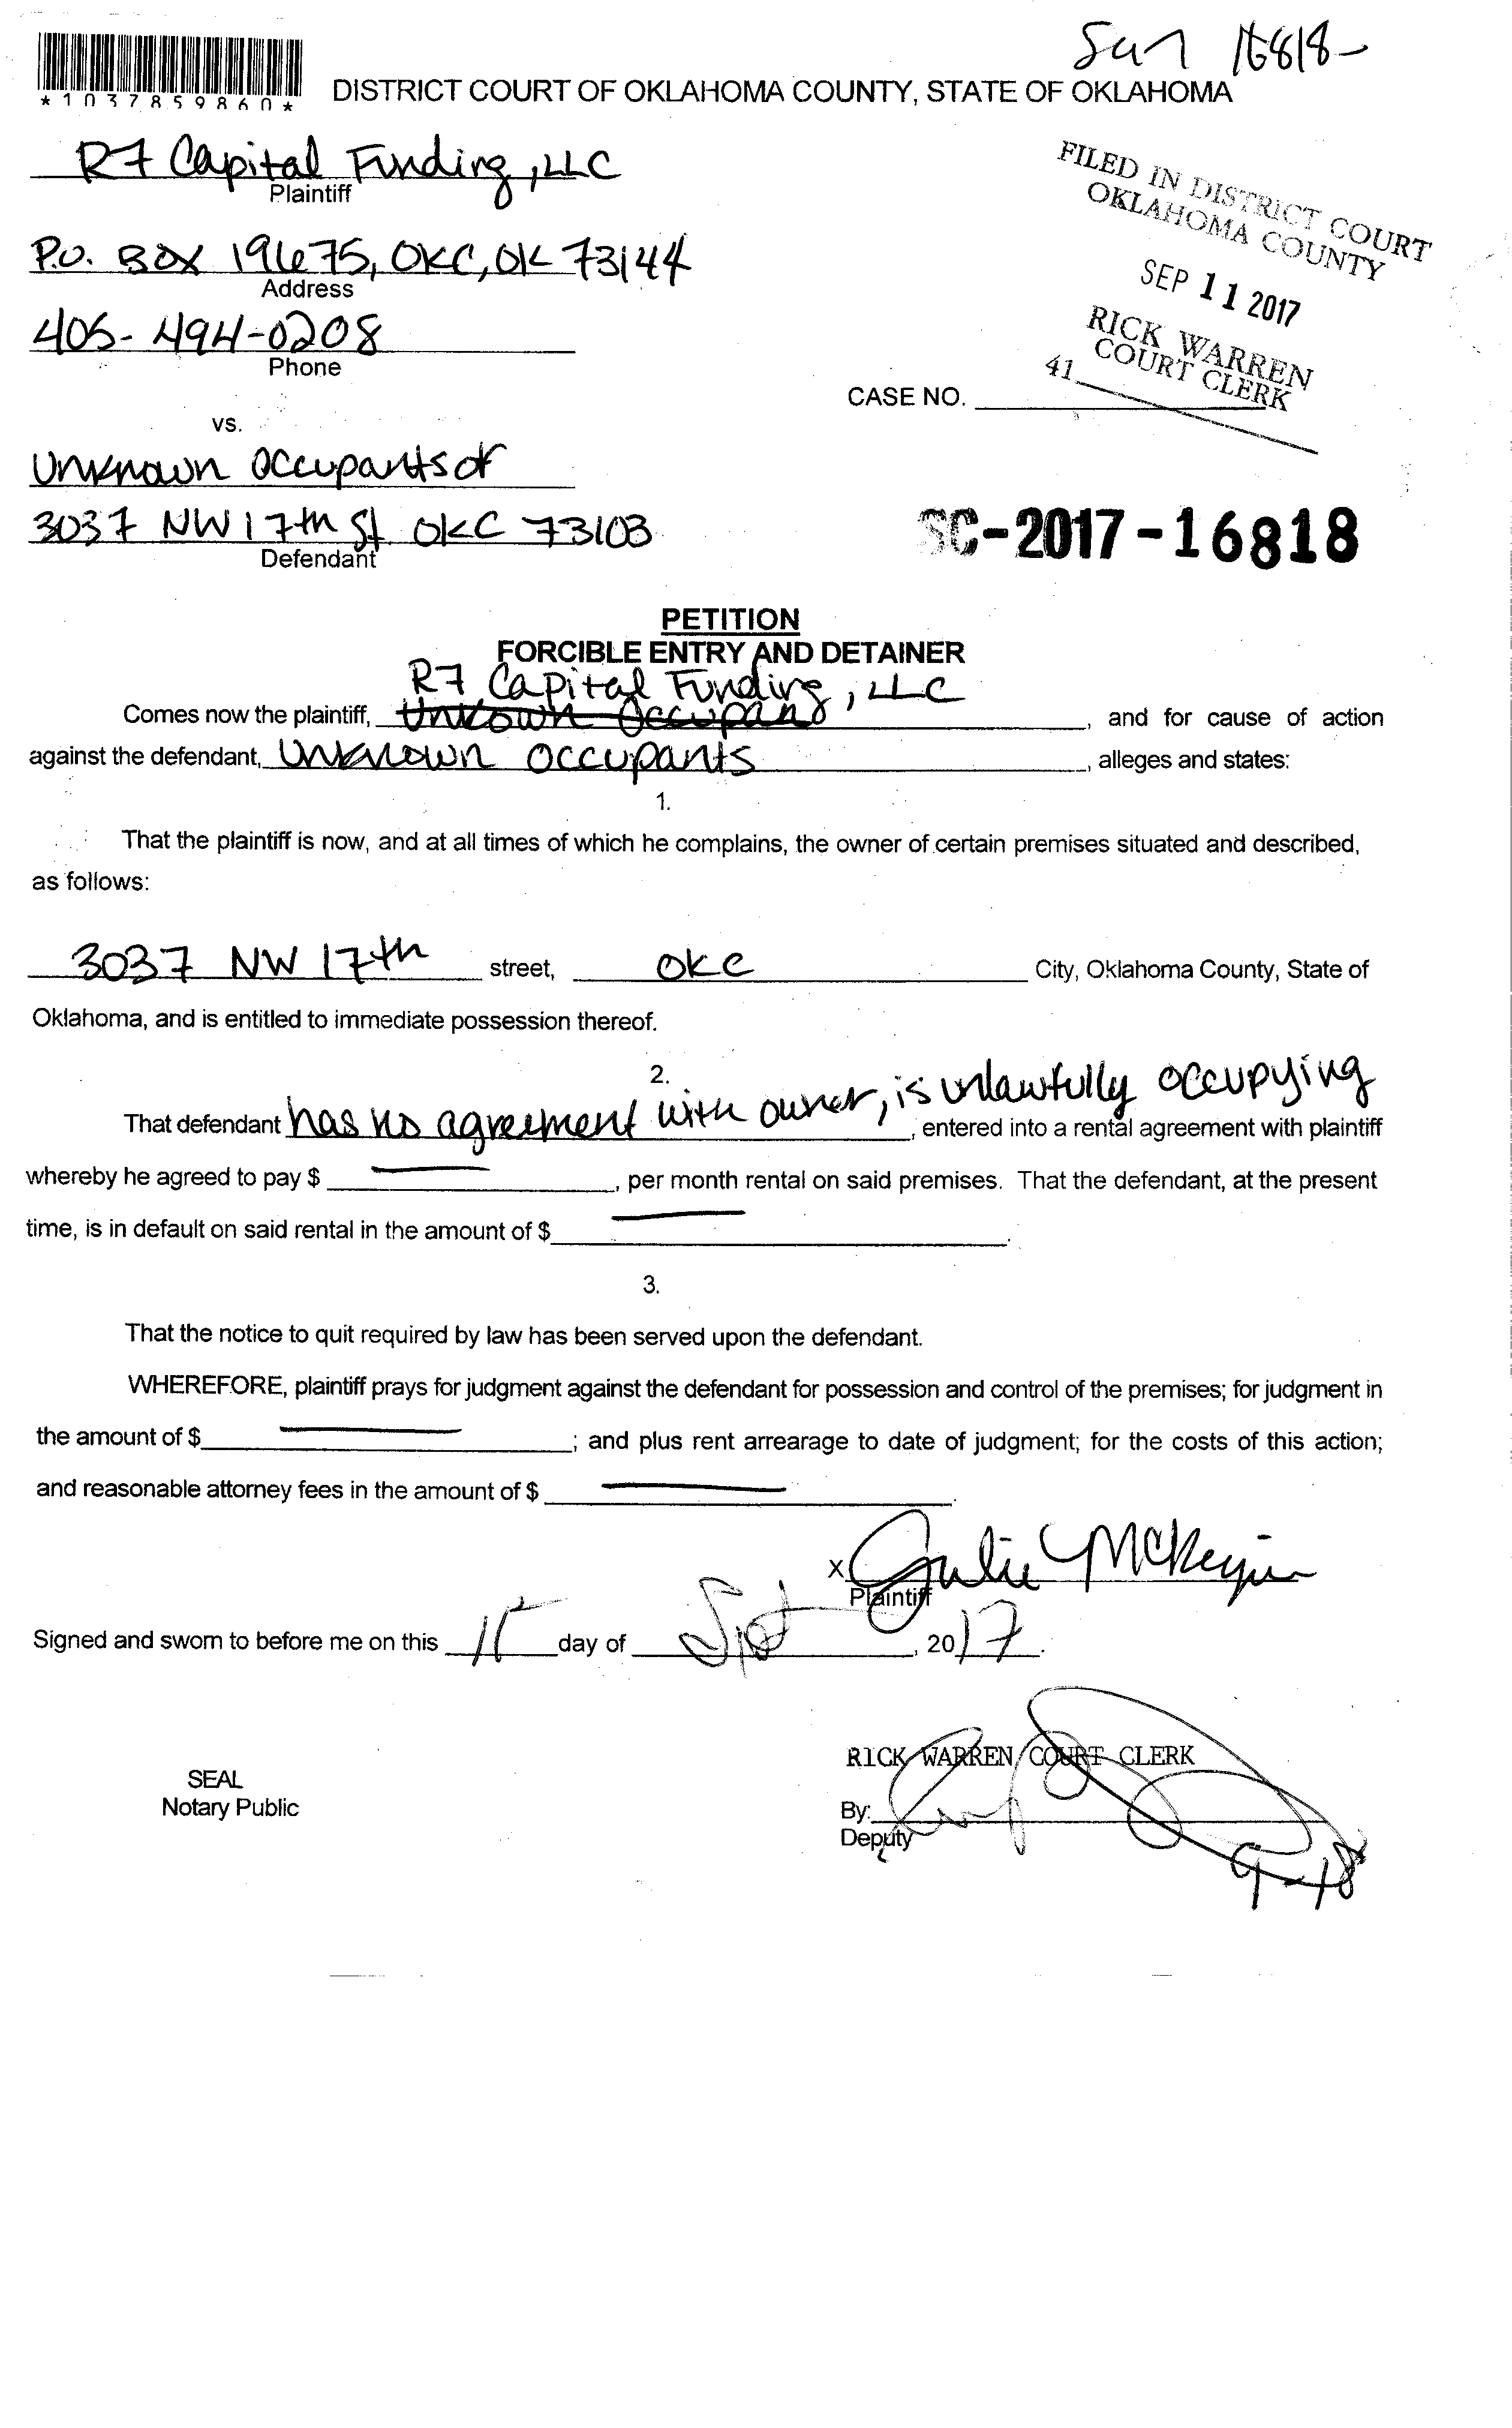 16818
*1037859860*
DISTRICT COURT OF OKLAHOMA COUNTY, STATE OF OKLAHOMA
R7 Capital Funding, LLC
Plaintiff
FILED IN DISTRICT COURT
OKLAHOMA COUNTY
P.O. BOX 19675, OKC, OK 73144
Address
SEP 11 2017
405-494-0208
Phone
RICK WARREN
COURT CLERK
41
CASE NO.
vs.
Unknown Occupants of
3037 NW 17th St. OKC 73103
Defendant
SC-2017-16818
PETITION
FORCIBLE ENTRY AND DETAINER
R7 Capital Funding, LLC
Comes now the plaintiff, Unkown Occupans, and for cause of action
against the defendant, Unknown Occupants, alleges and states:
1.
That the plaintiff is now, and at all times of which he complains, the owner of certain premises situated and described,
as follows:
3037 NW 17th street, OKC City, Oklahoma County, State of
Oklahoma, and is entitled to immediate possession thereof.
2.
That defendant has no agreement with owner, is unlawfully occupying, entered into a rental agreement with plaintiff
whereby he agreed to pay $ —, per month rental on said premises. That the defendant, at the present
time, is in default on said rental in the amount of $ —.
3.
That the notice to quit required by law has been served upon the defendant.
WHEREFORE, plaintiff prays for judgment against the defendant for possession and control of the premises; for judgment in
the amount of $ —; and plus rent arrearage to date of judgment; for the costs of this action;
and reasonable attorney fees in the amount of $ —.
X Julie
Plaintiff
Signed and sworn to before me on this 11 day of Sept, 2017.
RICK WARREN COURT CLERK
SEAL
Notary Public
By:
Deputy
9-18